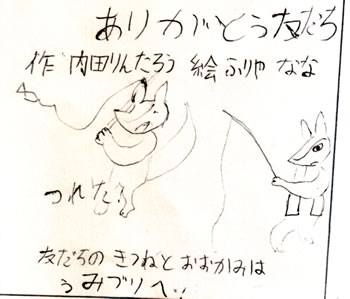 ありがとう友だち
作 内田りんたろう 絵 ふりや なな
つれた?
友だちの きつねと おおかみは
うみづりへ!